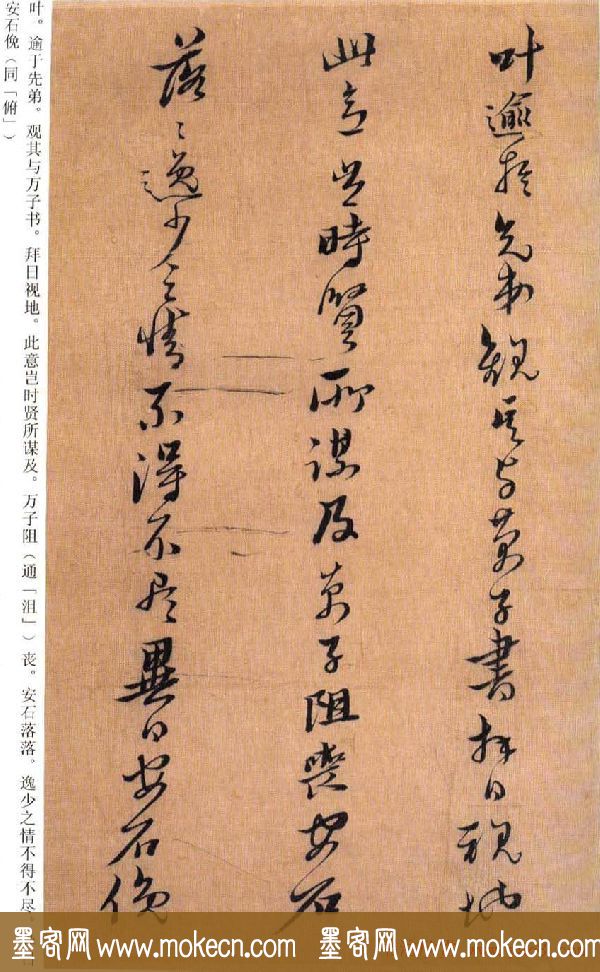 叶逾於先弟觀其与萬子書拜日視地
此意豈時賢所謀及萬子阻喪安石
落〻逸少之情不得不尽異日安石俛
叶。逾于先弟。观其与万子书。拜日视地。此意岂时贤所谋及。万子阻（通「沮」）丧。安石落落。逸少之情不得不尽。
安石俛（同「俯」）
墨客网 www.mokecn.com 墨客网 www.mokecn.com